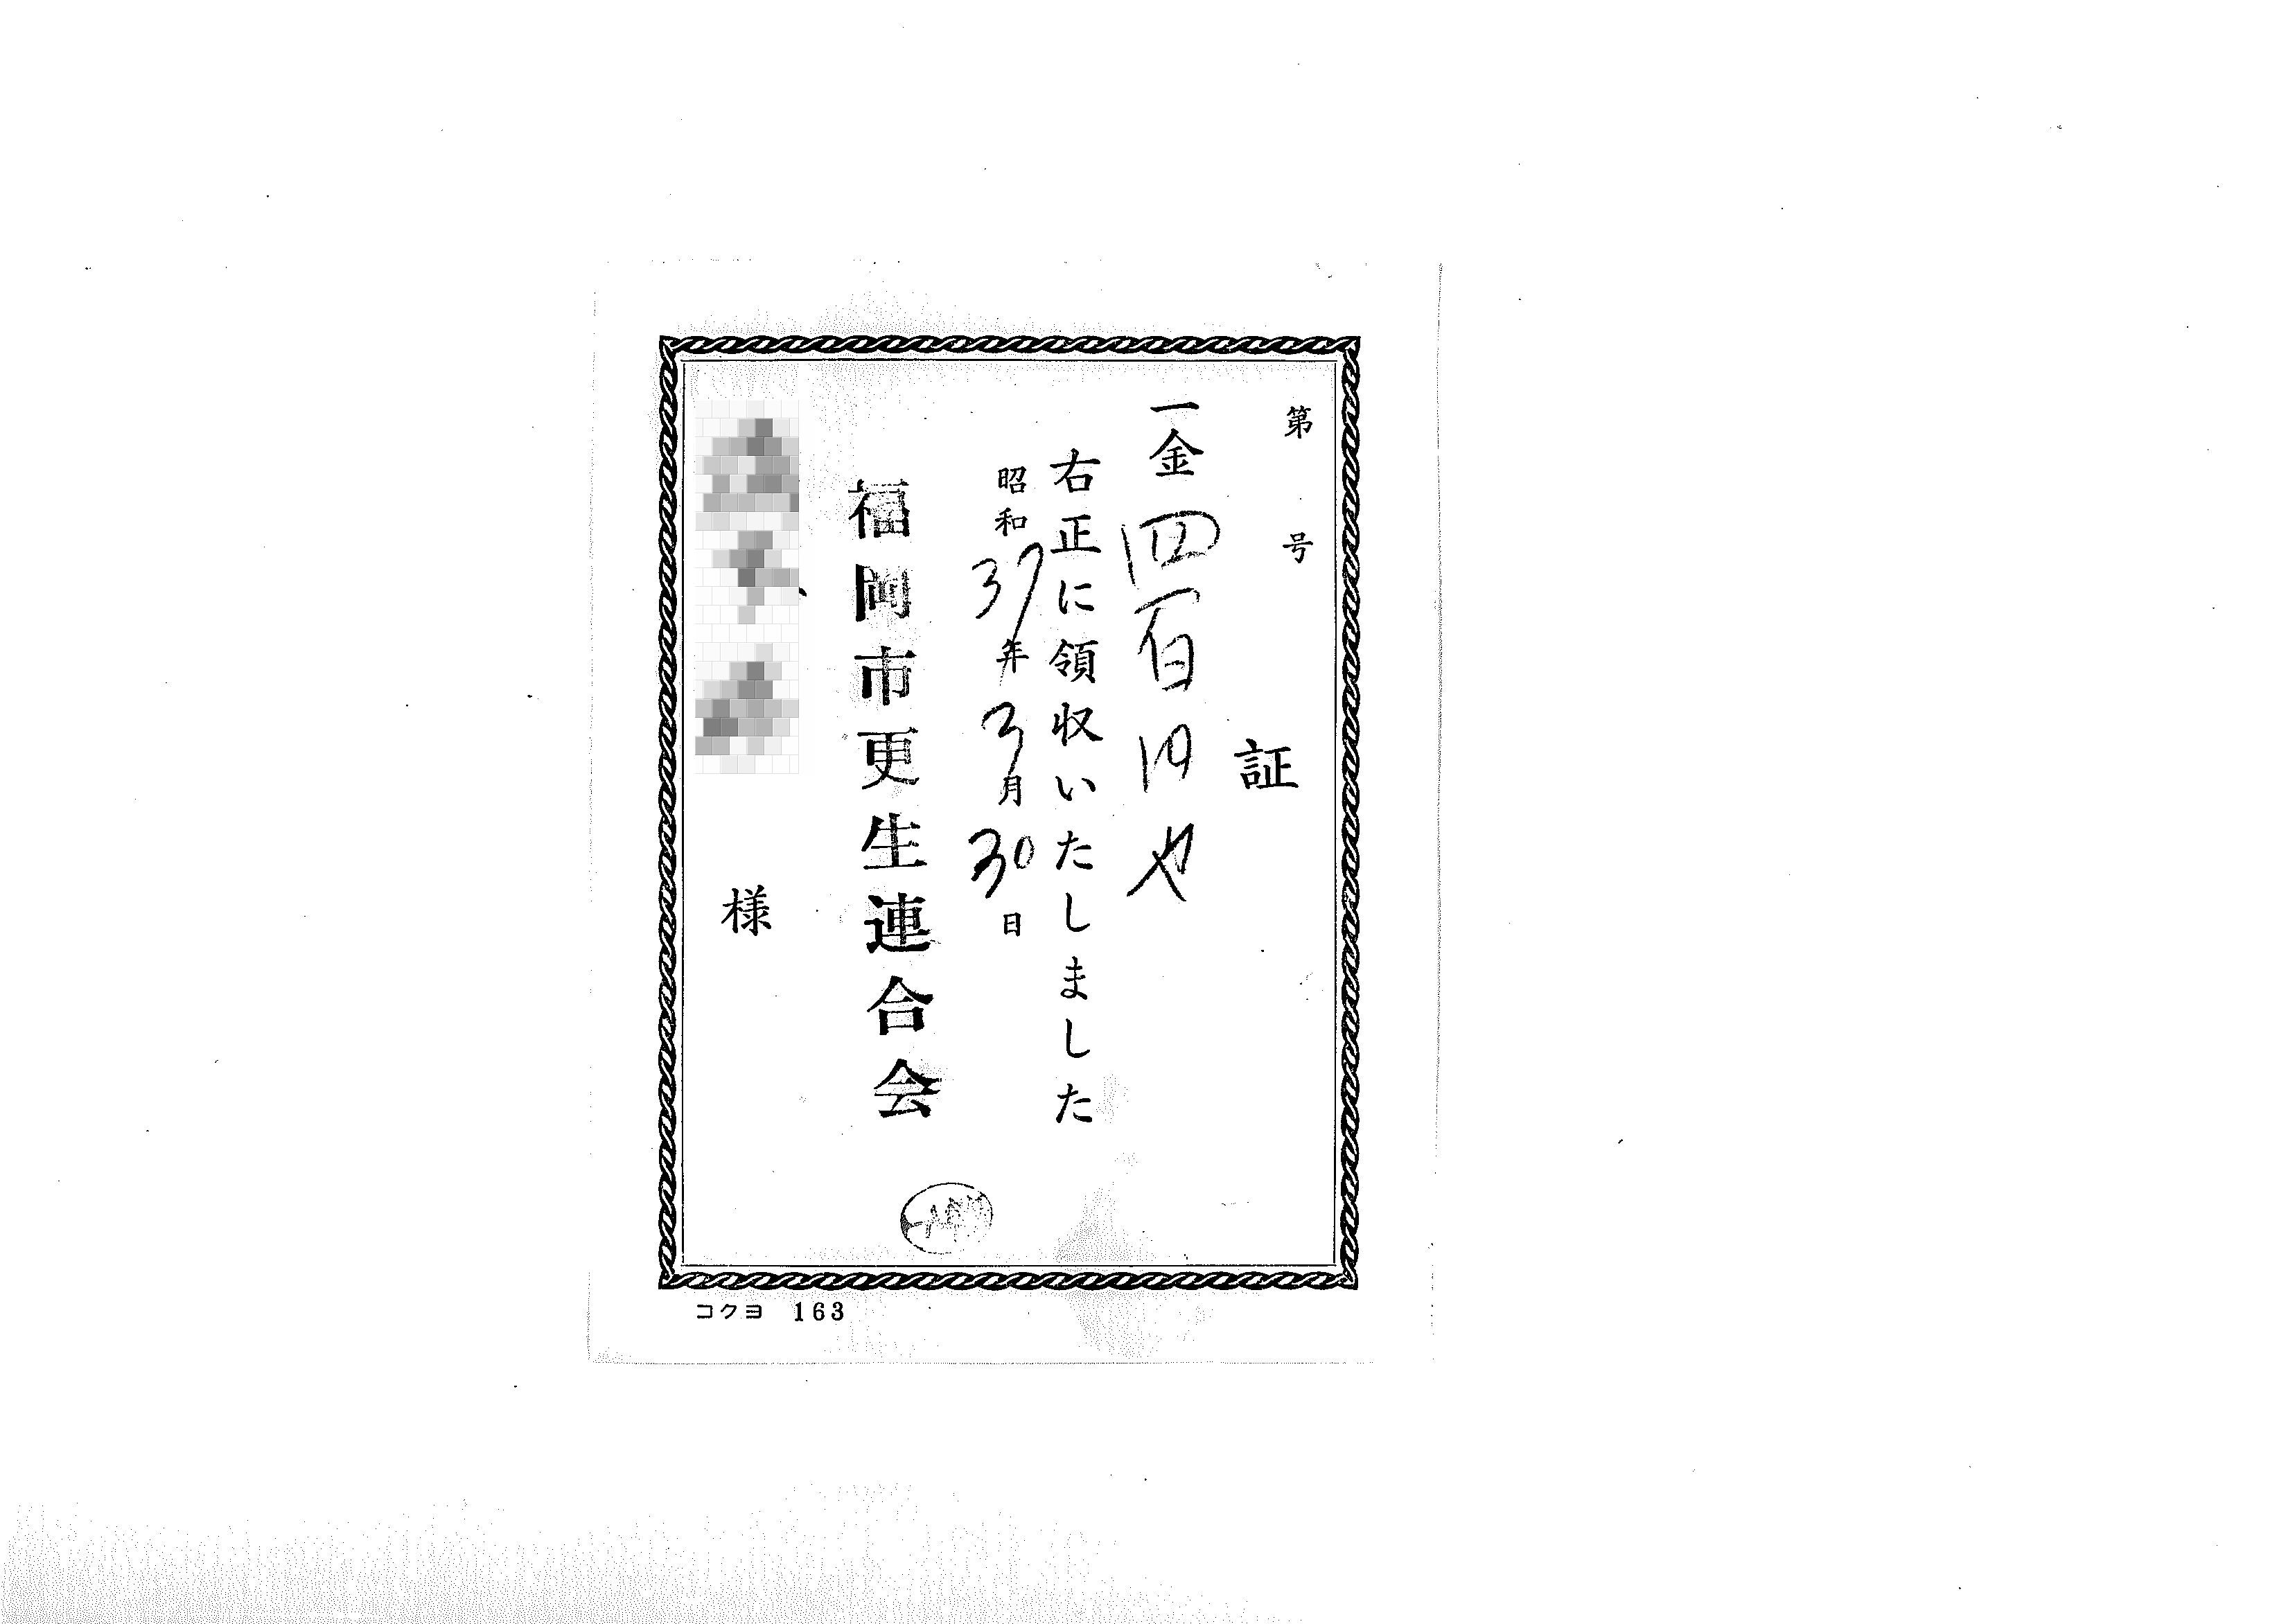 第 号
証
一金四百円也
右正に領収いたしました
昭和37年3月30日
福岡市更生連合会
様
コクヨ 163